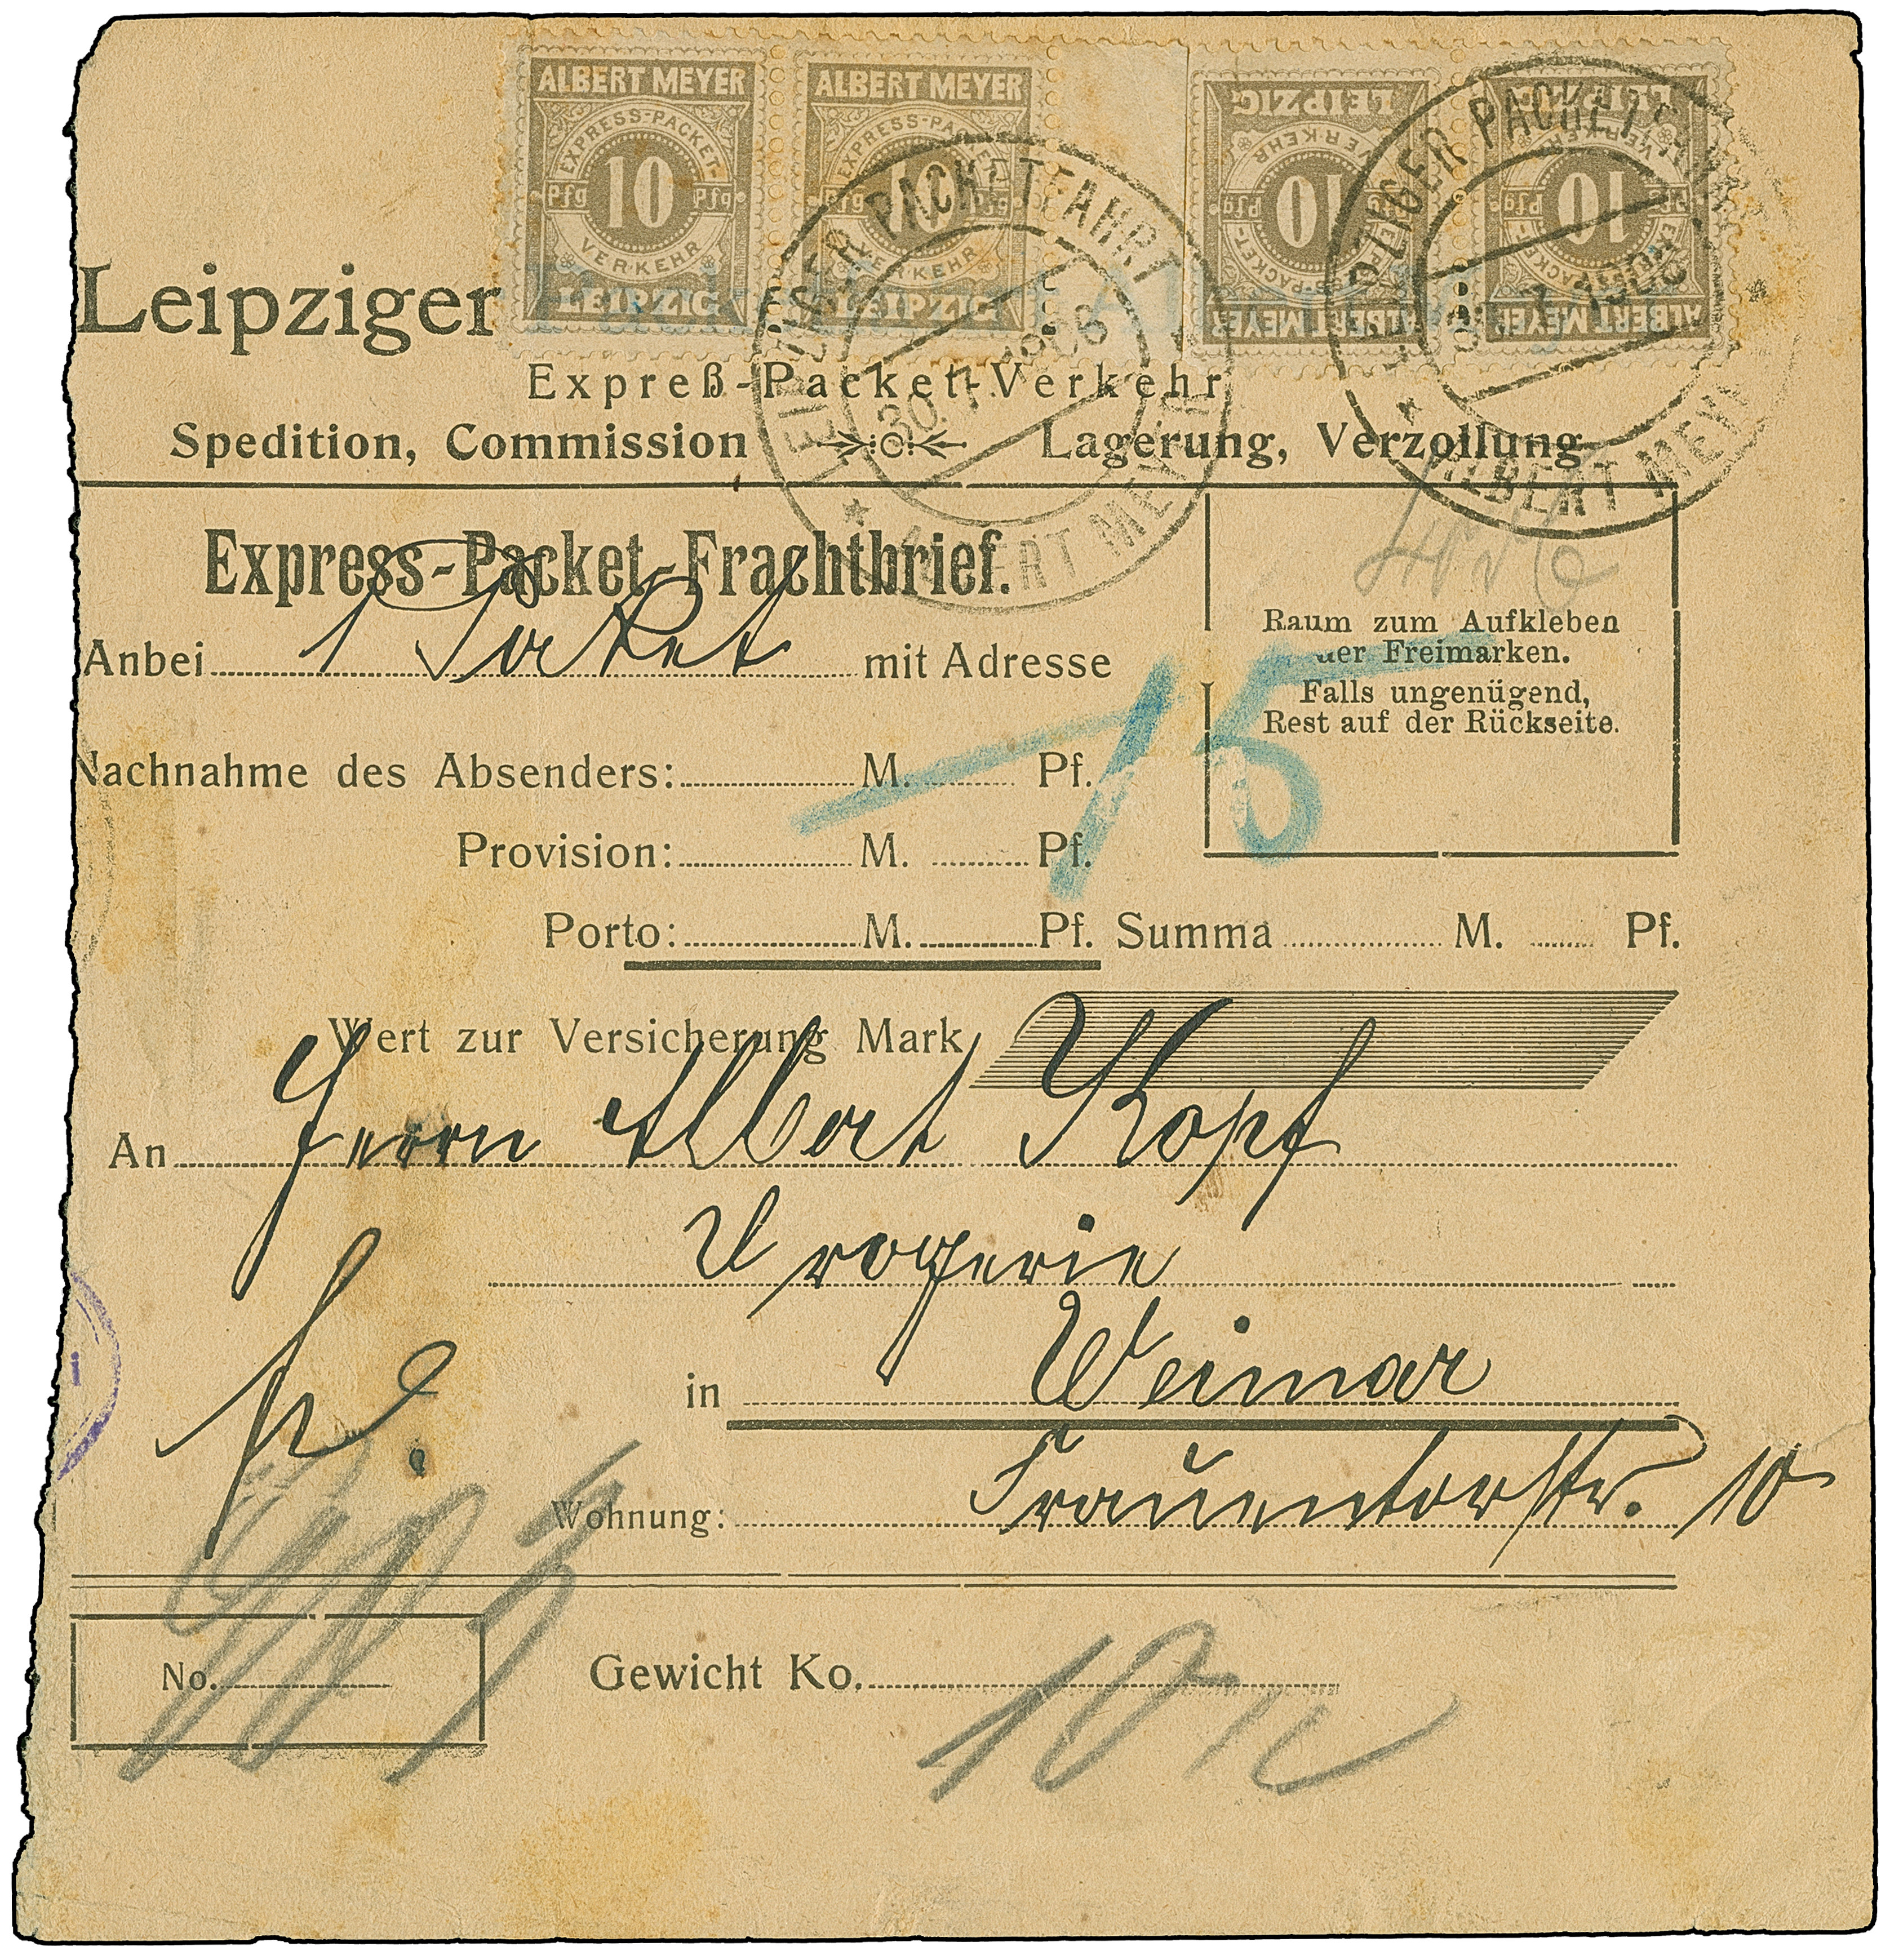 ALBERT MEYER
EXPRESS-PACKET-
Pfg 10 Pfg
VERKEHR
LEIPZIG
ALBERT MEYER
EXPRESS-PACKET-
Pfg 10 Pfg
VERKEHR
LEIPZIG
ALBERT MEYER
EXPRESS-PACKET-
Pfg 10 Pfg
VERKEHR
LEIPZIG
ALBERT MEYER
EXPRESS-PACKET-
Pfg 10 Pfg
VERKEHR
LEIPZIG
LEIPZIGER PACKETFAHRT
30.7.1906
* ALBERT MEYER
LEIPZIGER PACKETFAHRT
* ALBERT MEYER
Leipziger
Expreß-Packet-Verkehr
Spedition, Commission Lagerung, Verzollung
Express-Packet-Frachtbrief.
Anbei 1 Paket mit Adresse
Raum zum Aufkleben
der Freimarken.
Falls ungenügend,
Rest auf der Rückseite.
15
Nachnahme des Absenders: M. Pf.
Provision: M. Pf.
Porto: M. Pf. Summa M. Pf.
Wert zur Versicherung Mark
An Herrn Albert Kopf
Drogerie
in Weimar
Wohnung: Frauentorstr. 10
No.
Gewicht Ko. 10